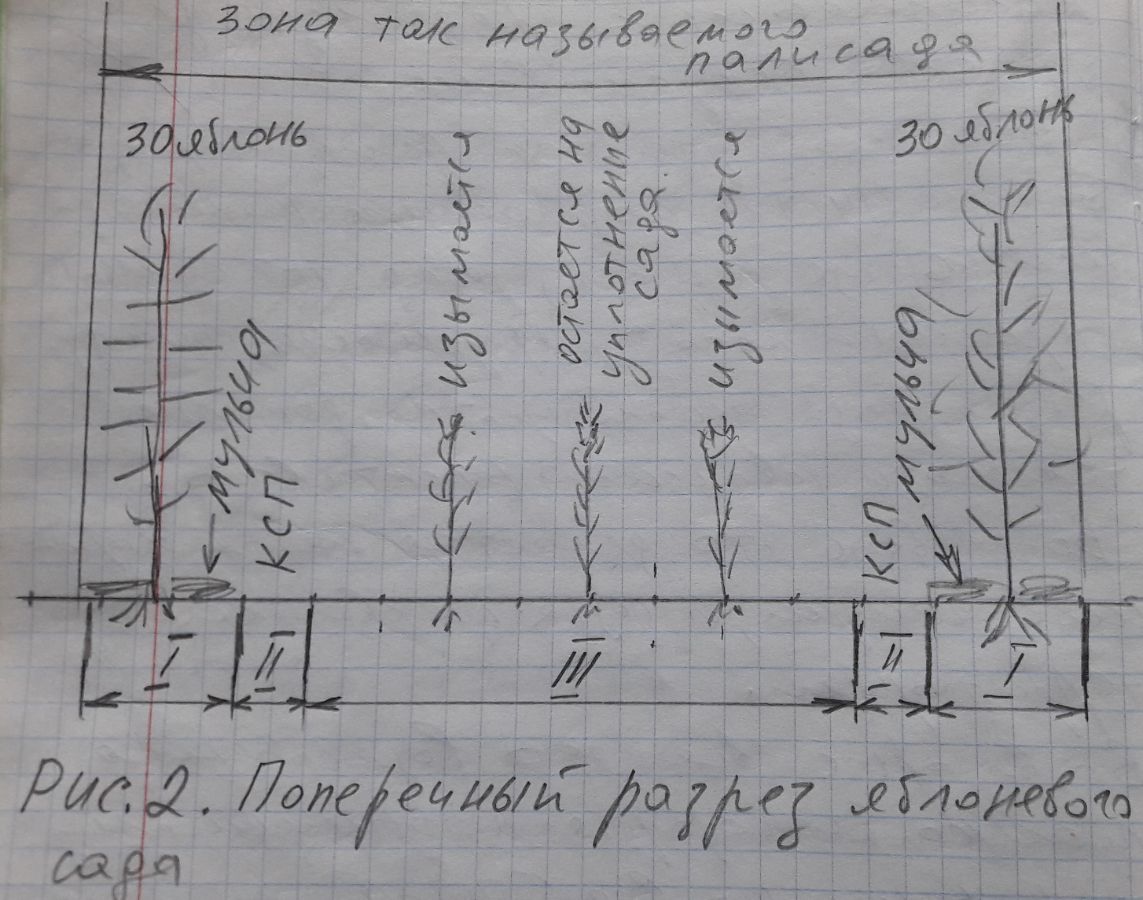 Зона так называемого
палисада
30 яблонь
изымается
остается на
уплотнение
сада.
изымается
30 яблонь
мульча
КСП
КСП
мульча
I
II
III
II
I
Рис. 2. Поперечный разрез яблоневого
сада